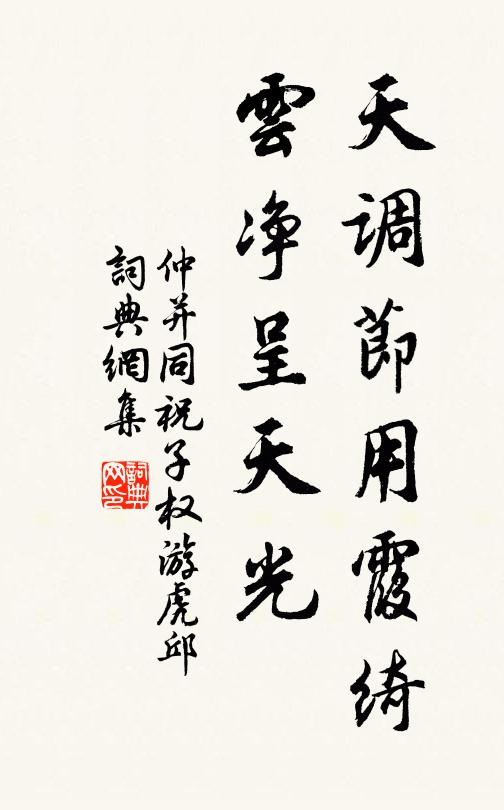 天调節用霞綺
雲净呈天光
仲并同祝子权游虎邱
詞典網集
詞典网印